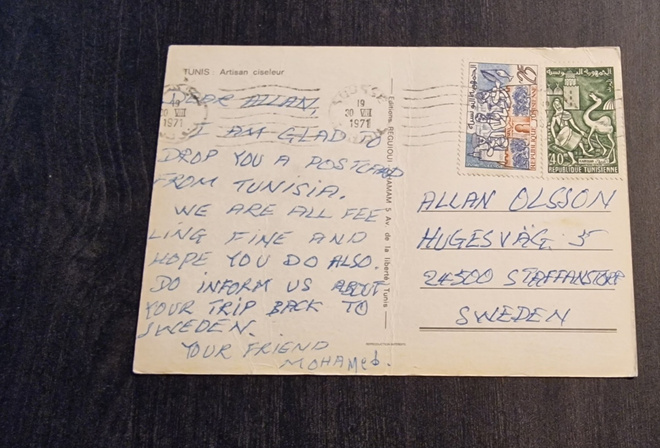 TUNIS : Artisan ciseleur
DEAR ALLAN,
I AM GLAD TO
DROP YOU A POSTCARD
FROM TUNISIA.
WE ARE ALL FEE
LING FINE AND
HOPE YOU DO ALSO.
DO INFORM US ABOUT
YOUR TRIP BACK TO
SWEDEN.
YOUR FRIEND
MOHAMED.
19
1971
19
1971
5 Av. de la liberté, Tunis
25
REPUBLIQUE TUNISIENNE
الجمهورية التونسية
40
REPUBLIQUE TUNISIENNE
ALLAN OLSSON
HUGESVÄG. 5
24500 STAFFANSTORP
SWEDEN